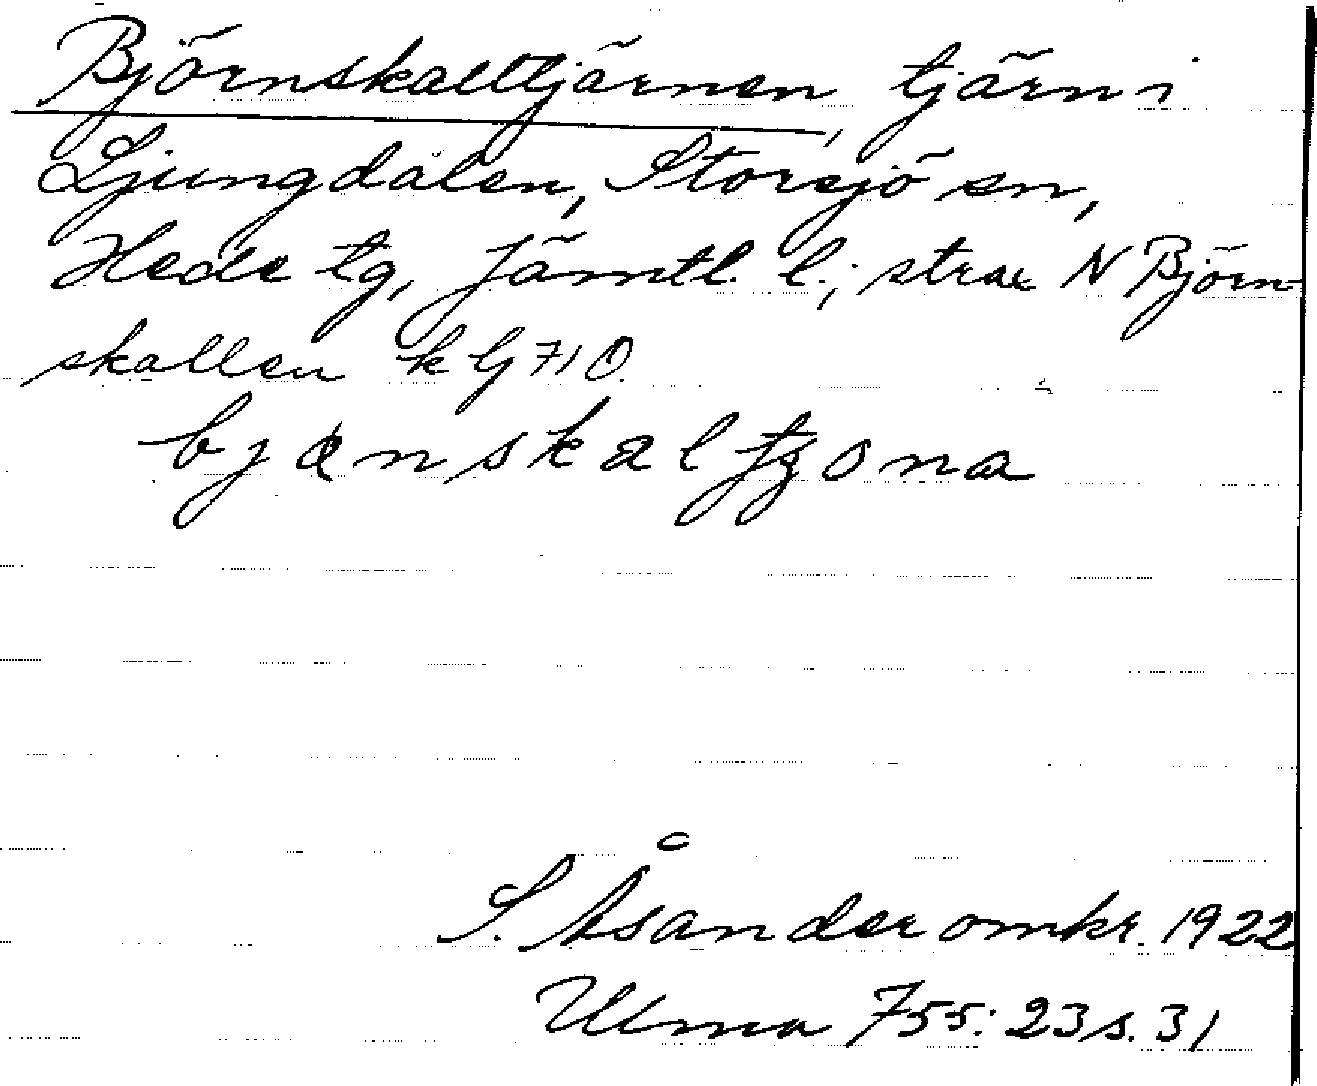 Björnskalltjärnen, tjärn i
Ljungdalen, Storsjö sn,
Hede tg, Jämtl. l.; strax N Björn-
skallen k G 710.
S. Åsander omkr. 1922
Ulma 755: 23 s. 31